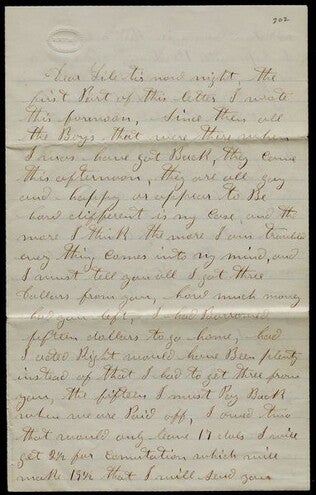 202
Dear Lile tis now night, the
first Part of this letter I wrote
this forenoon, Since then all
the Boys that were there when
I was home got Back, they came
this afternoon, they are all gay
and happy or appear to Be
how different is my case, and the
more I think the more I am troubled
every thing comes into my mind, and
I must tell you all I got three
Dollars from you, how much money
had you left, I had Borrowed
fifteen dollars to go home, had
I acted Right would have Been plenty
instead of that I had to get three from
you, the fifteen I must Pay Back
when we are Paid off, I owed two
that would only leave 17 dols I will
get 2½ for comutation which will
make 19½ that I will send you